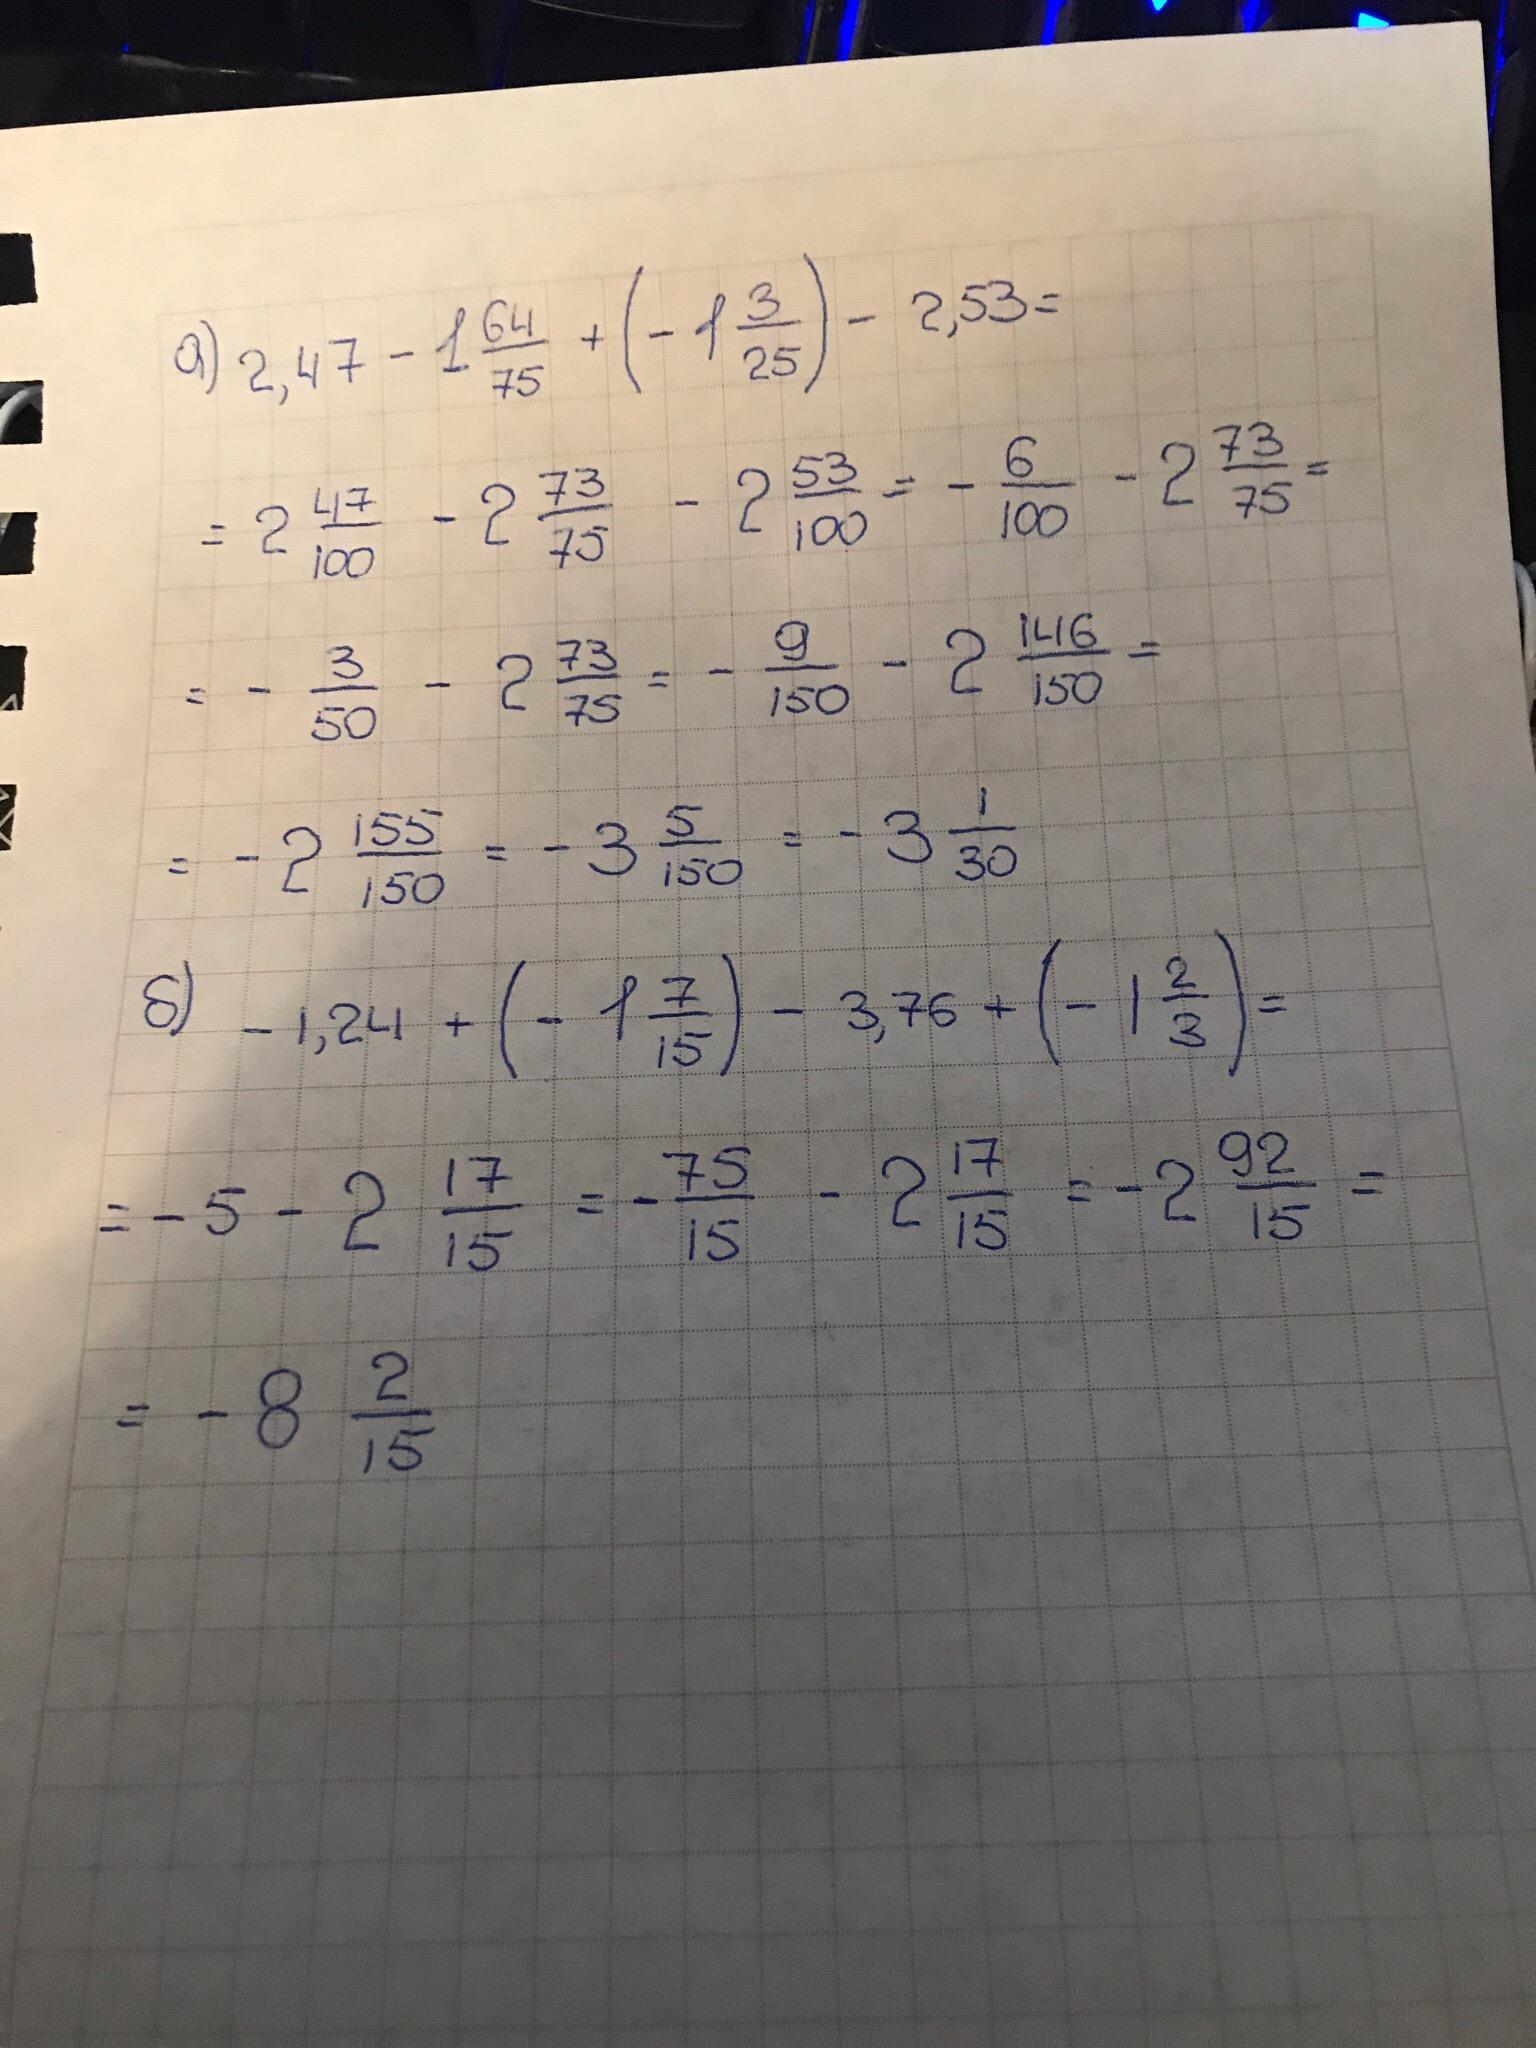 а) 2,47 - 1 64/75 + (- 1 3/25) - 2,53 =
= 2 47/100 - 2 73/75 - 2 53/100 = - 6/100 - 2 73/75 =
= - 3/50 - 2 73/75 = - 9/150 - 2 146/150 =
= - 2 155/150 = - 3 5/150 = - 3 1/30
б) - 1,24 + (- 1 7/15) - 3,76 + (- 1 2/3) =
= - 5 - 2 17/15 = - 75/15 - 2 17/15 = - 2 92/15 =
= - 8 2/15